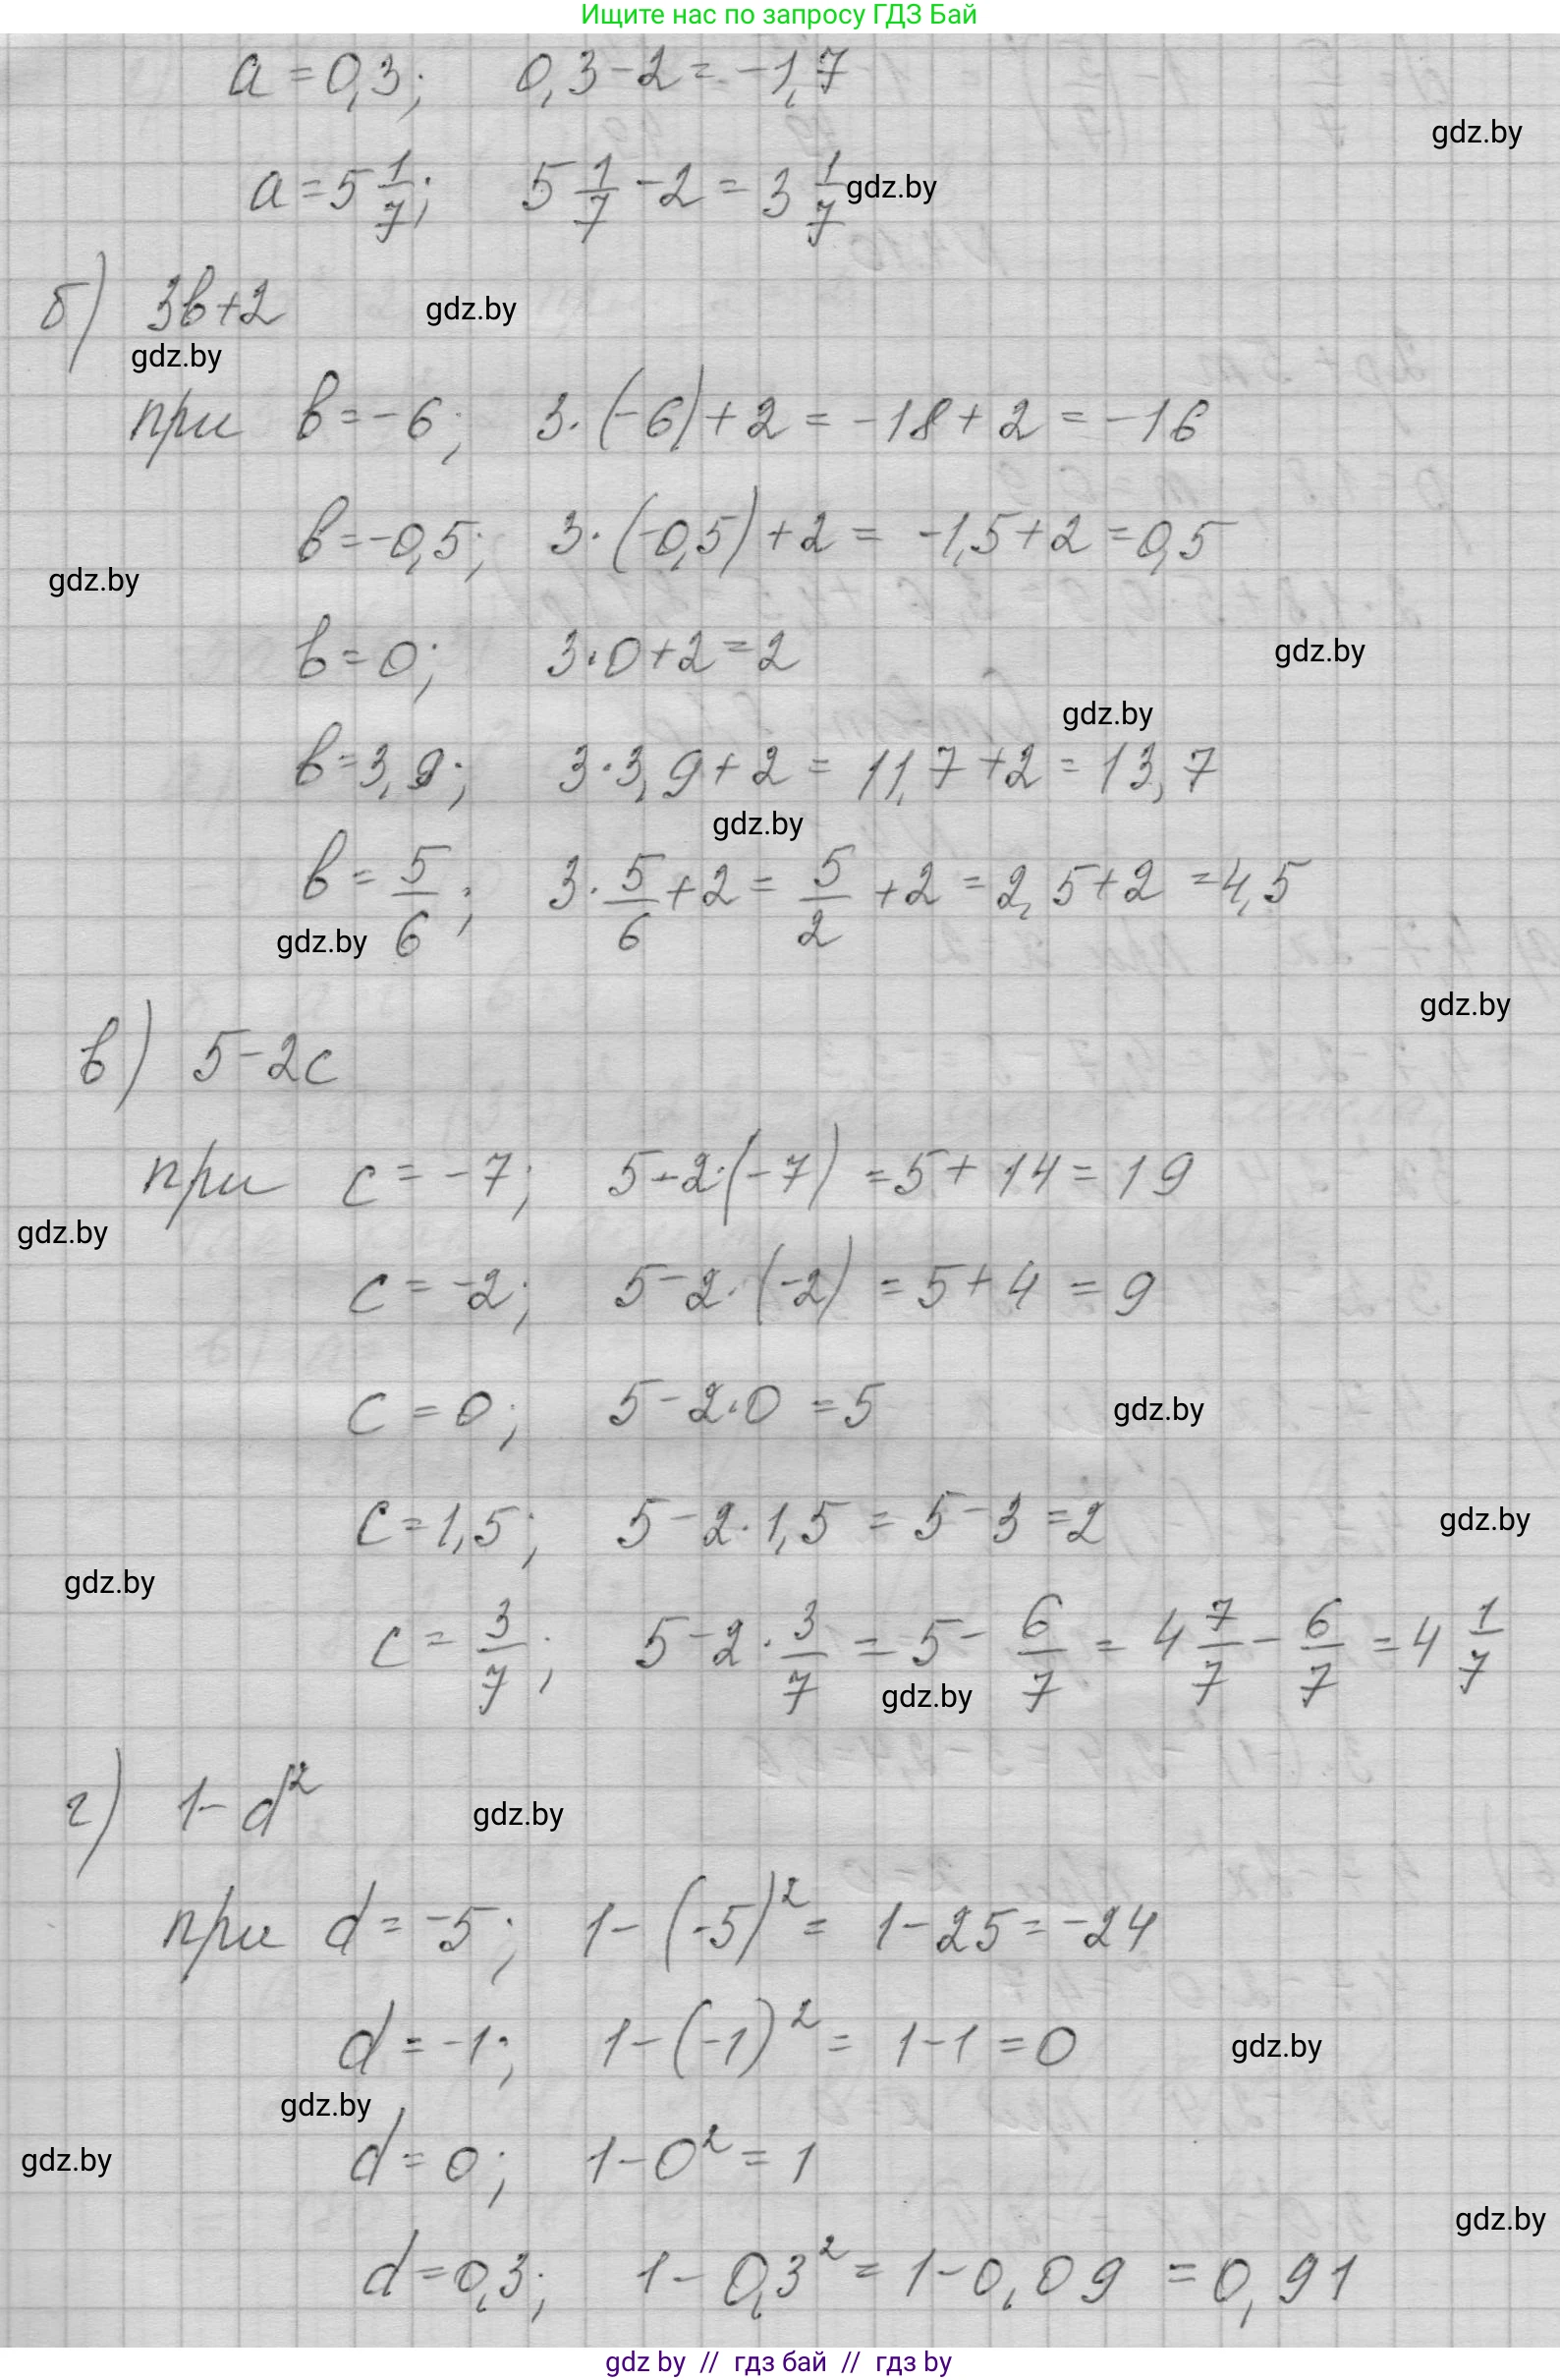 Ищите нас по запросу ГДЗ Бай
a = 0,3; 0,3 - 2 = -1,7
gdz.by
a = 5 1/7; 5 1/7 - 2 = 3 1/7 gdz.by
б) 3b+2 gdz.by
gdz.by
при b = -6; 3·(-6)+2 = -18+2 = -16
b = -0,5; 3·(-0,5)+2 = -1,5+2 = 0,5
gdz.by
b = 0; 3·0+2 = 2 gdz.by
gdz.by
b = 3,9; 3·3,9+2 = 11,7+2 = 13,7
gdz.by
b = 5/6; 3·5/6+2 = 5/2+2 = 2,5+2 = 4,5
gdz.by
gdz.by
в) 5-2c
при c = -7; 5-2·(-7) = 5+14 = 19
gdz.by
c = -2; 5-2·(-2) = 5+4 = 9
c = 0; 5-2·0 = 5 gdz.by
c = 1,5; 5-2·1,5 = 5-3 = 2 gdz.by
gdz.by
c = 3/7; 5-2·3/7 = 5-6/7 = 4 7/7 - 6/7 = 4 1/7
gdz.by
г) 1-d² gdz.by
при d = -5; 1-(-5)² = 1-25 = -24
d = -1; 1-(-1)² = 1-1 = 0 gdz.by
gdz.by
d = 0; 1-0² = 1
gdz.by
gdz.by
d = 0,3; 1-0,3² = 1-0,09 = 0,91
gdz by // гдз бай // гдз by